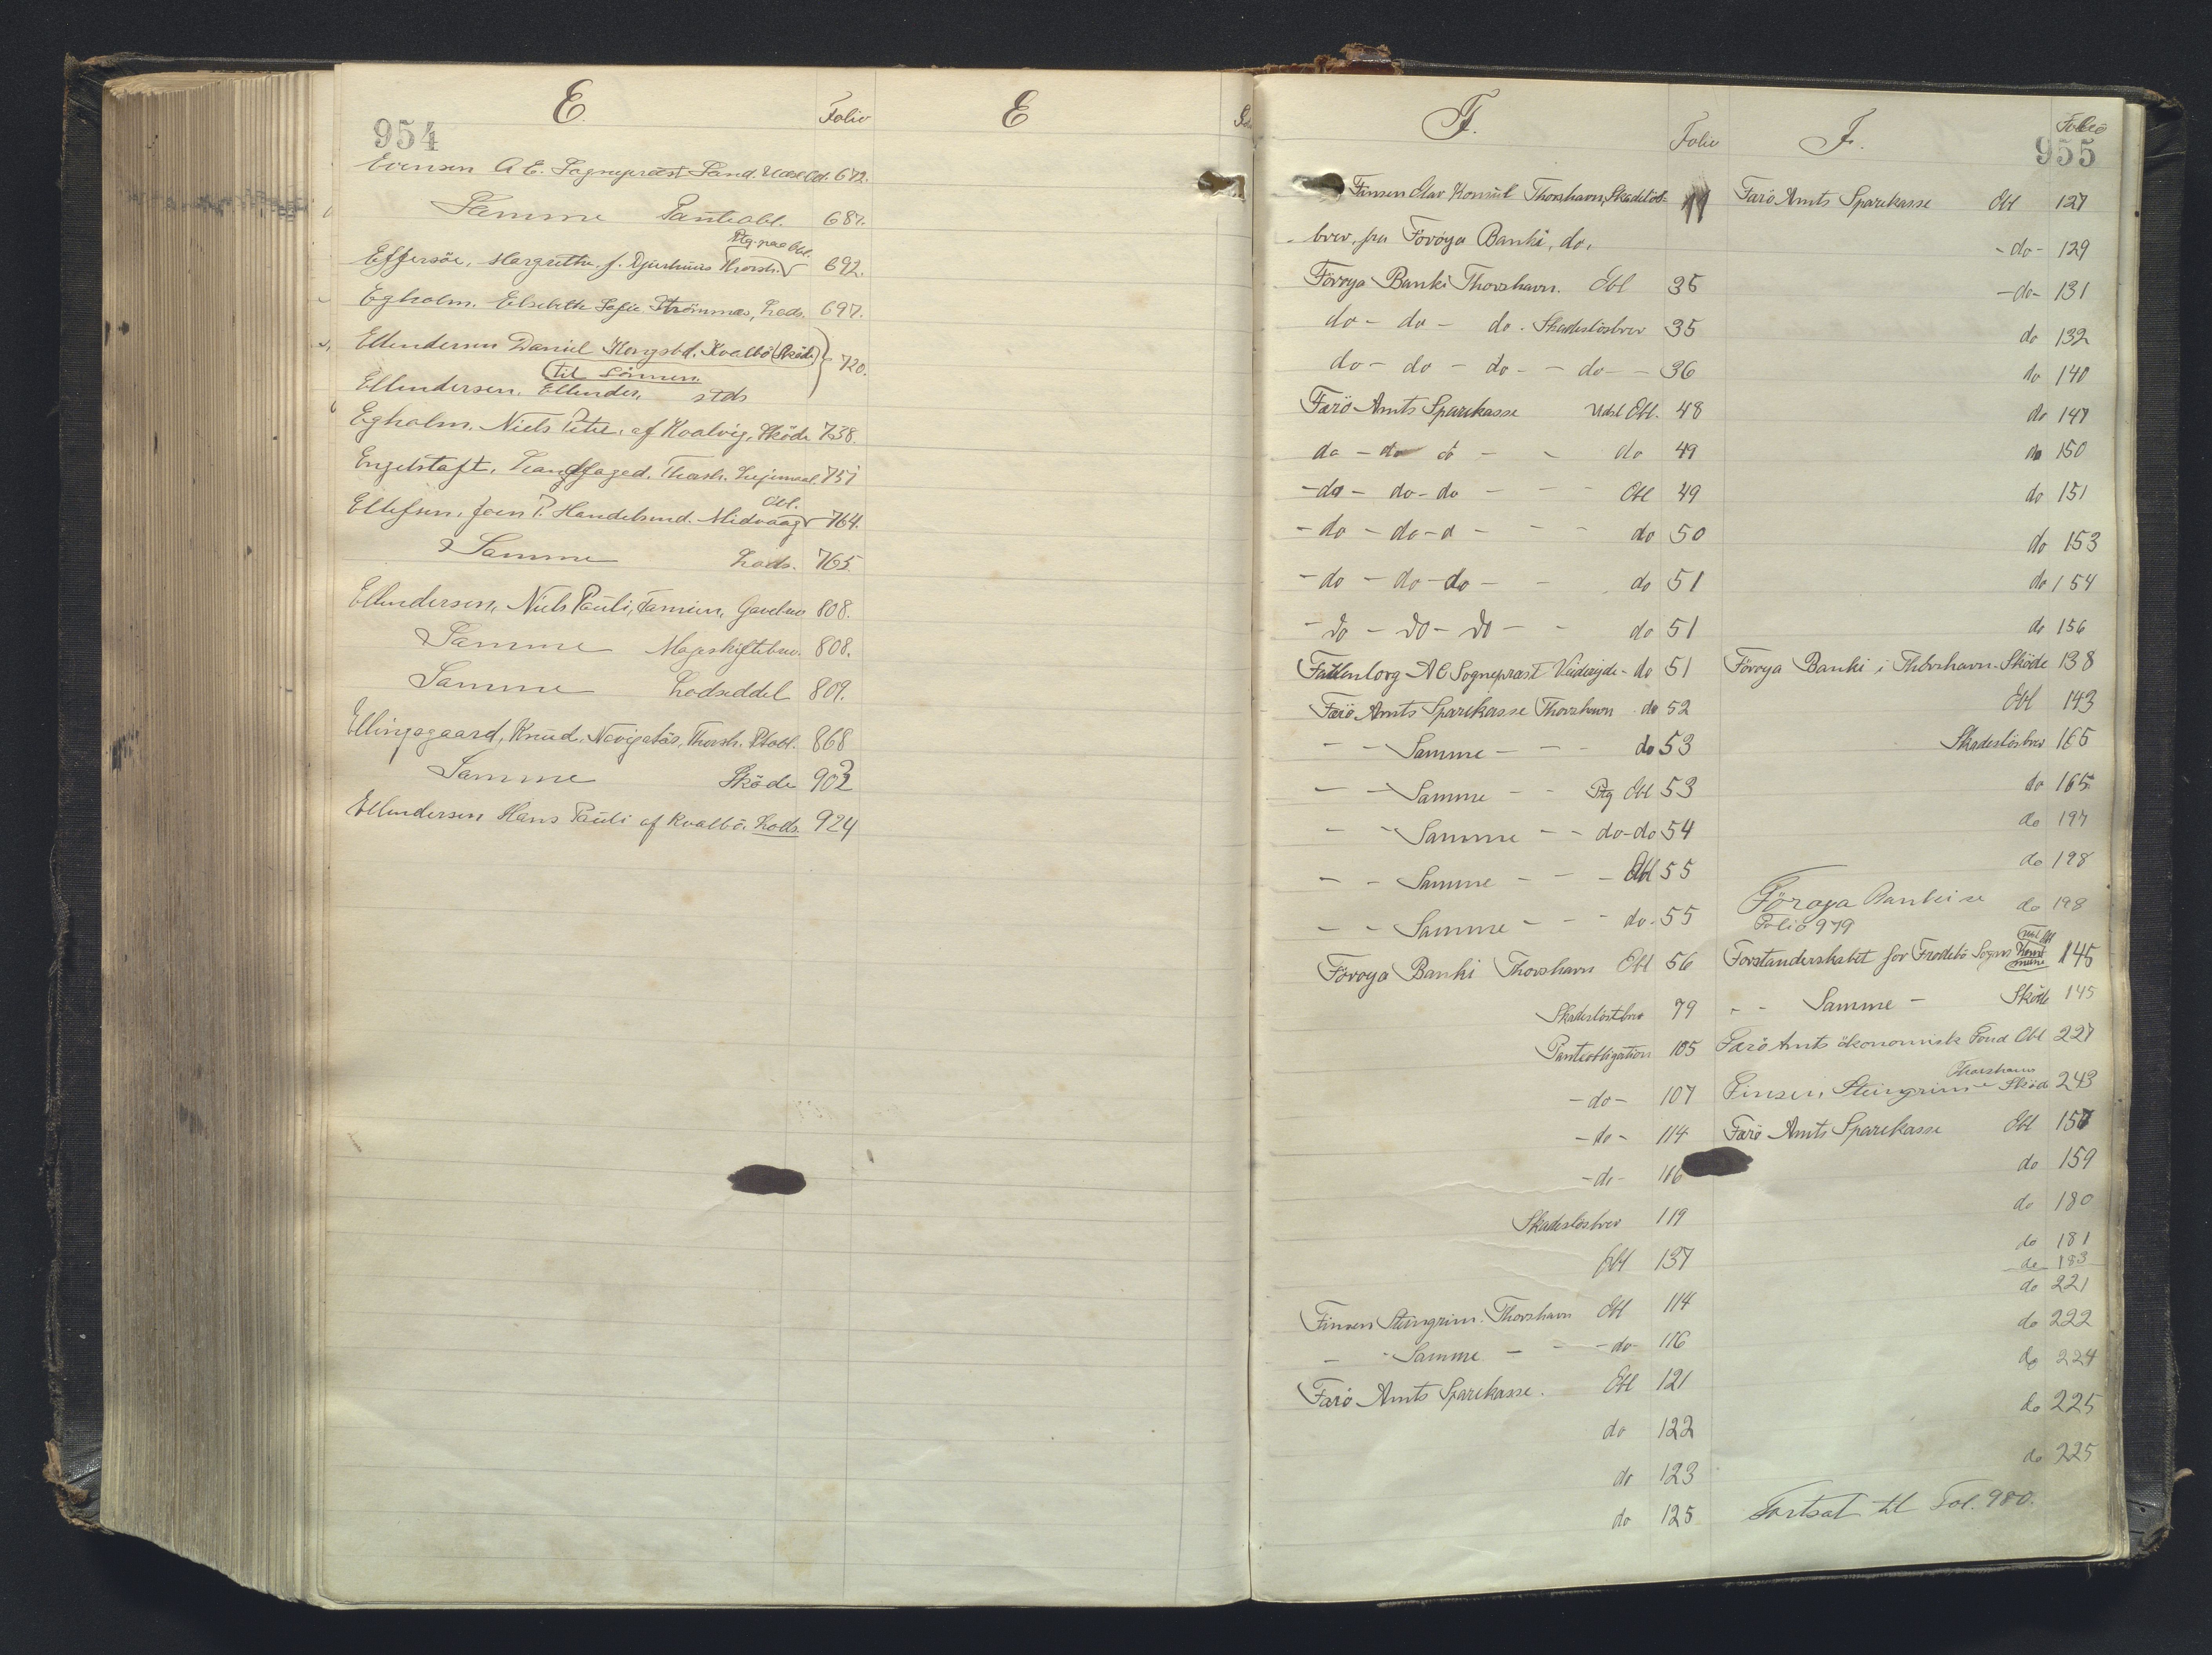 954
E.
Folio
E
Evensen A E. Sognepræst Sand. Udsl Obl. 672.
Samme Panteobl. 687.
Ptg. paa Obl.
Effersöe, Margrethe f. Djurhuus Thorsh. 692.
Egholm. Elsebeth Sofie Strömnæs, Lods. 697.
Ellendersen Daniel Kongsbd. Kvalbö (Sköde) 720.
til Sönnen
Ellendersen, Ellender, stds
Egholm. Niels Peter. af Hvalvig, Sköde 738.
Engelstaft, Landfoged. Thorsh. Lejemaal. 751
Obl.
Ellefsen, Joen P. Handelsmd. Midvaag 764.
Samme Lods. 765
Ellendersen, Niels Pauli, Famien, Gavebrev 808.
Samme Mageskiftebrev. 808.
Samme Lodseddel 809.
Ellingsgaard, Knud. Navigatör, Thorsh. Ptobl. 868
Samme Sköde 902
Ellendersen Hans Pauli af Kvalbö. Lods. 924
F.
Folio
F.
Folio
955
Finsen Olav Konsul Thorshavn, Skadeslös- 11
brev. fra Föroya Banki, do.
Föroya Banki Thorshavn. Obl 35
do - do - do. Skadeslösbrev 35
do - do - do - - do - - 36
Færö Amts Sparekasse Udsl Obl. 48
do - do d - - do 49
- do - do - do - - - Obl 49
- do - do - d - - - do 50
- do - do - do - - do 51
- do - do - do - - do 51
Fallenborg A C Sognepræst Viderejde - do 51
Færö Amts Sparekasse Thorshavn do 52
- - Samme - - - do 53
- - Samme - - Ptg Obl 53
- - Samme - - do - do 54
- - Samme - - - Obl 55
- - Samme - - - do. 55
Föroya Banki Thorshavn Obl 56
Skadeslöstbrev 79
Panteobligation 105
- do - 107
- do - 114
- do - 116
Skadeslösbrev 119
Obl 137
Finsen Steingrim. Thorshavn Obl 114
- - Samme - - - do - 116
Færö Amts Sparekasse. Obl 121
do 122
do 123
do 125
Færö Amts Sparekasse Obl 127
- do - 129
- do - 131
do 132
do 140
do 147
do 150
do 151
do 153
do 154
do 156
Föroya Banki i Thorshavn - Sköde 138
Obl 143
Skadeslösbrev 165
do 165
do 197
do 198
Föroya Banki se do 198
Folio 979
Udsl Obl
Forstanderskabet for Frodebö Sogns Kommune 145
- - Samme - Sköde 145
Færö Amts ökonomiske Fond Obl 227
Thorshavn
Finsen, Steingrim - Sköde 243
Færö Amts Sparekasse Obl 157
do 159
do 180
do 181
do 183
do 221
do 222
do 224
do 225
do 225
Fortsat til Fol. 980.